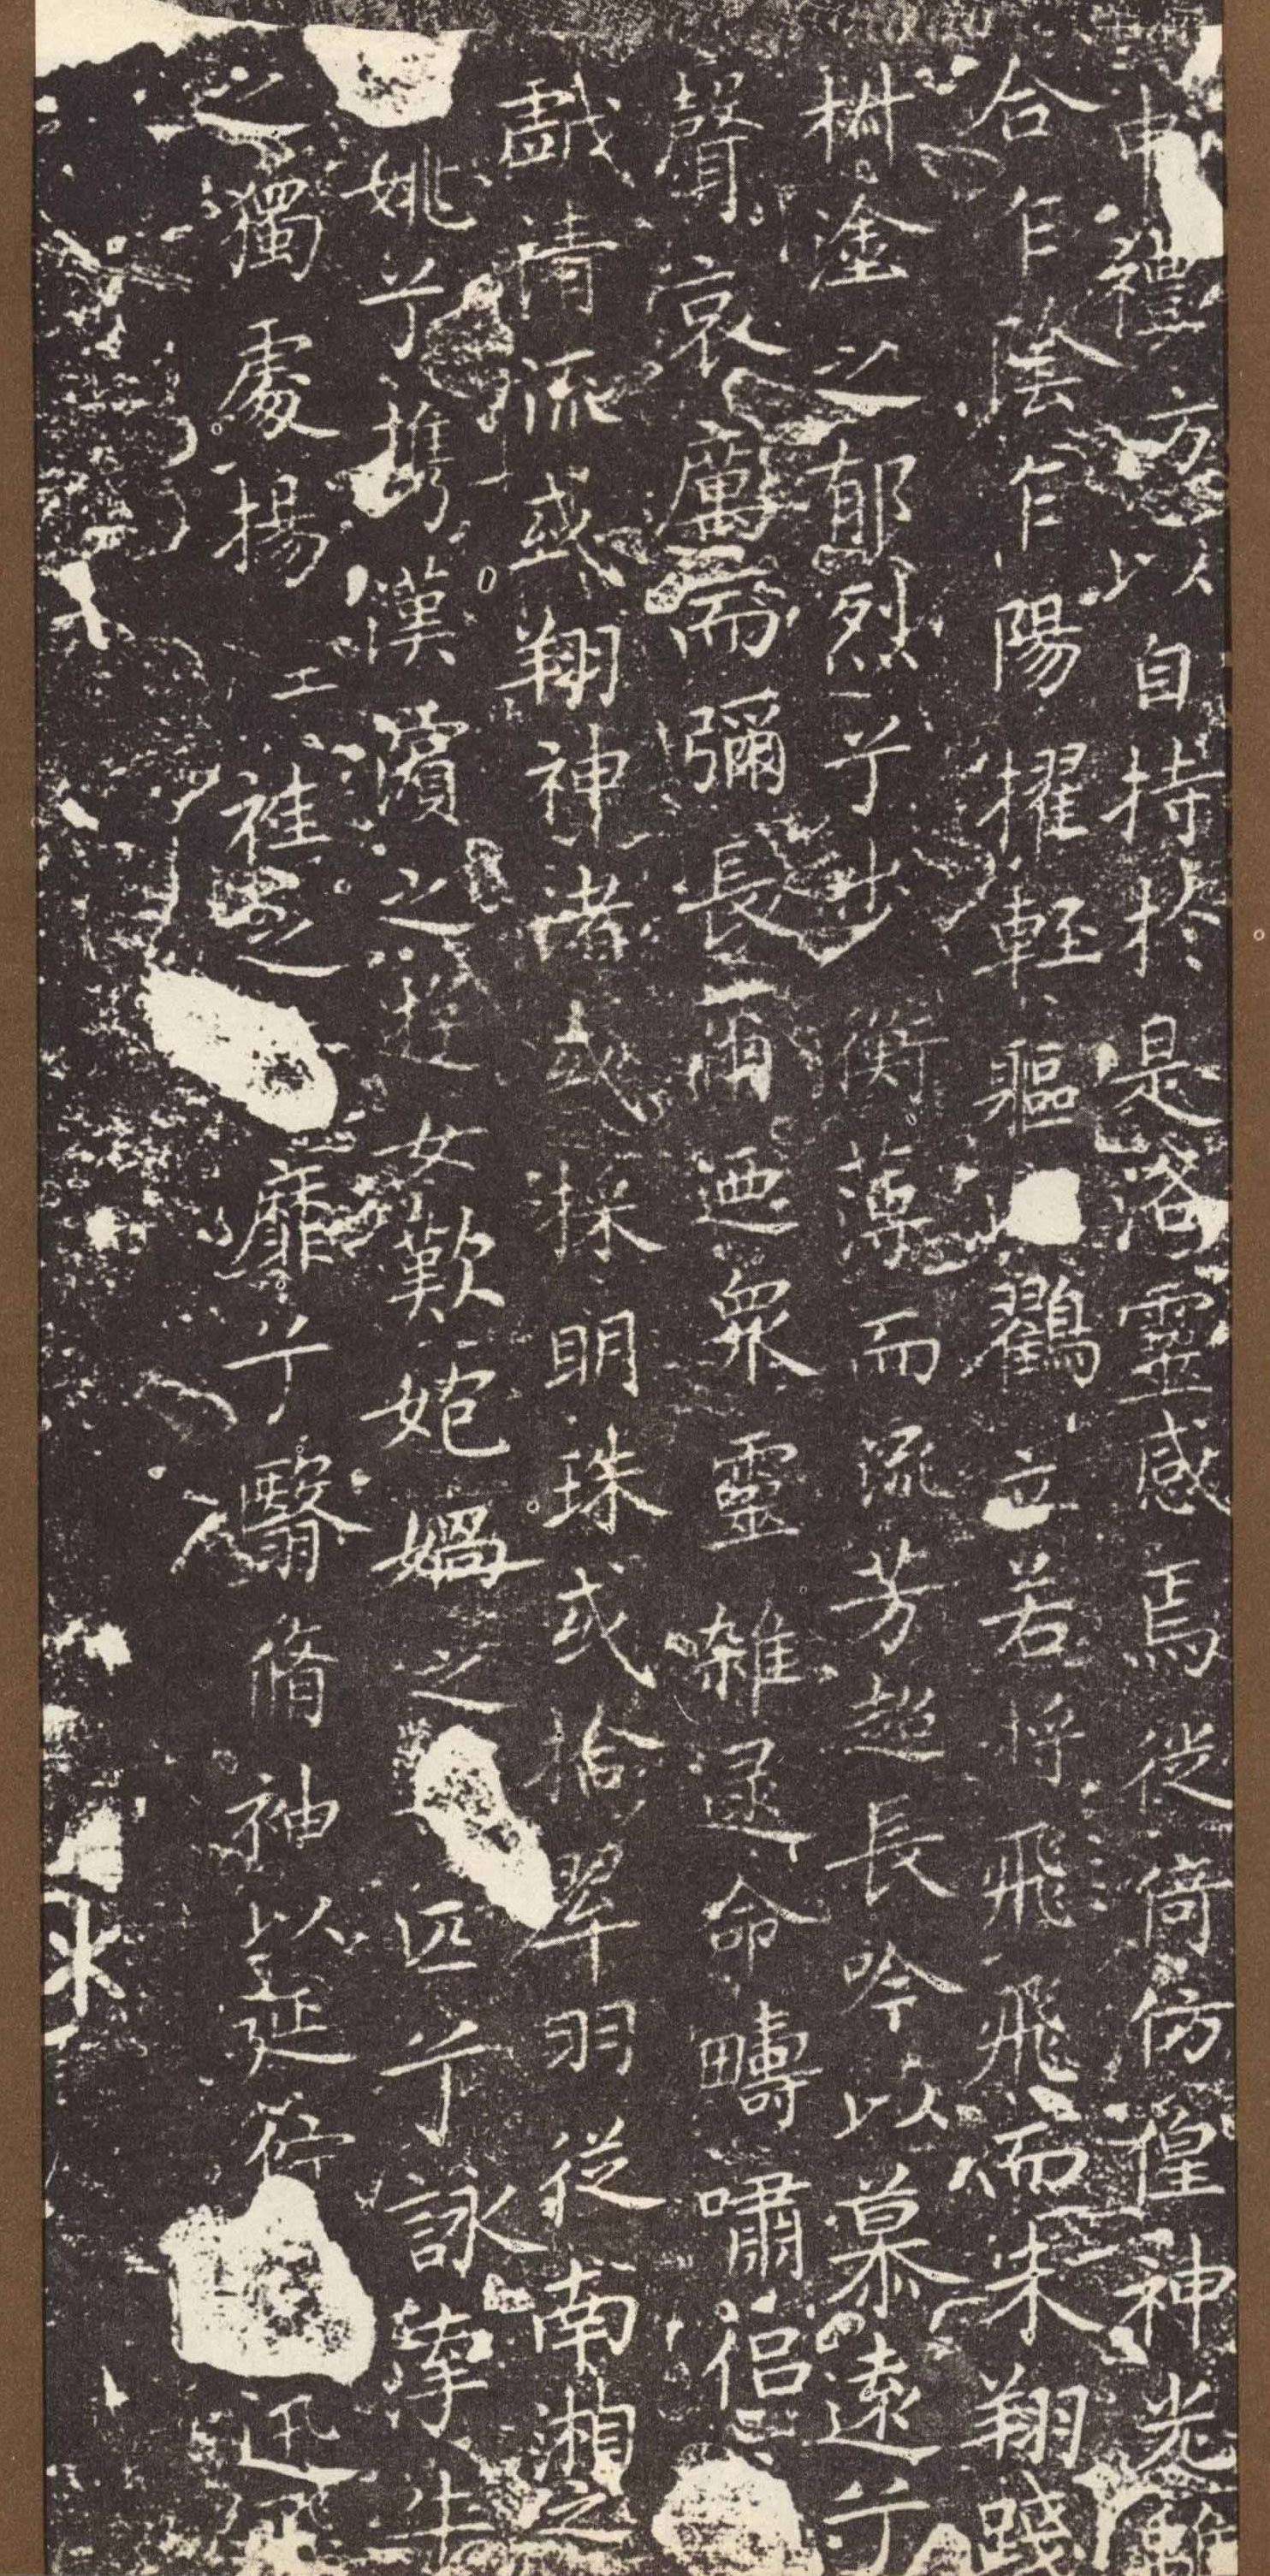 申禮方以自持於是洛靈感焉徙倚仿偟神光離
合乍陰乍陽擢輕軀以鶴立若將飛飛而未翔踐
椒塗之郁烈兮步衡薄而流芳超長吟以慕遠兮
聲哀厲而彌長爾迺衆靈雜遝命疇嘯侶
戲清流或翔神渚或採明珠或拾翠羽從南湘之
姚兮攜漢濱之遊女歎匏媧之匹兮詠牽牛
之獨處揚袿之靡兮翳脩袖以延佇迅